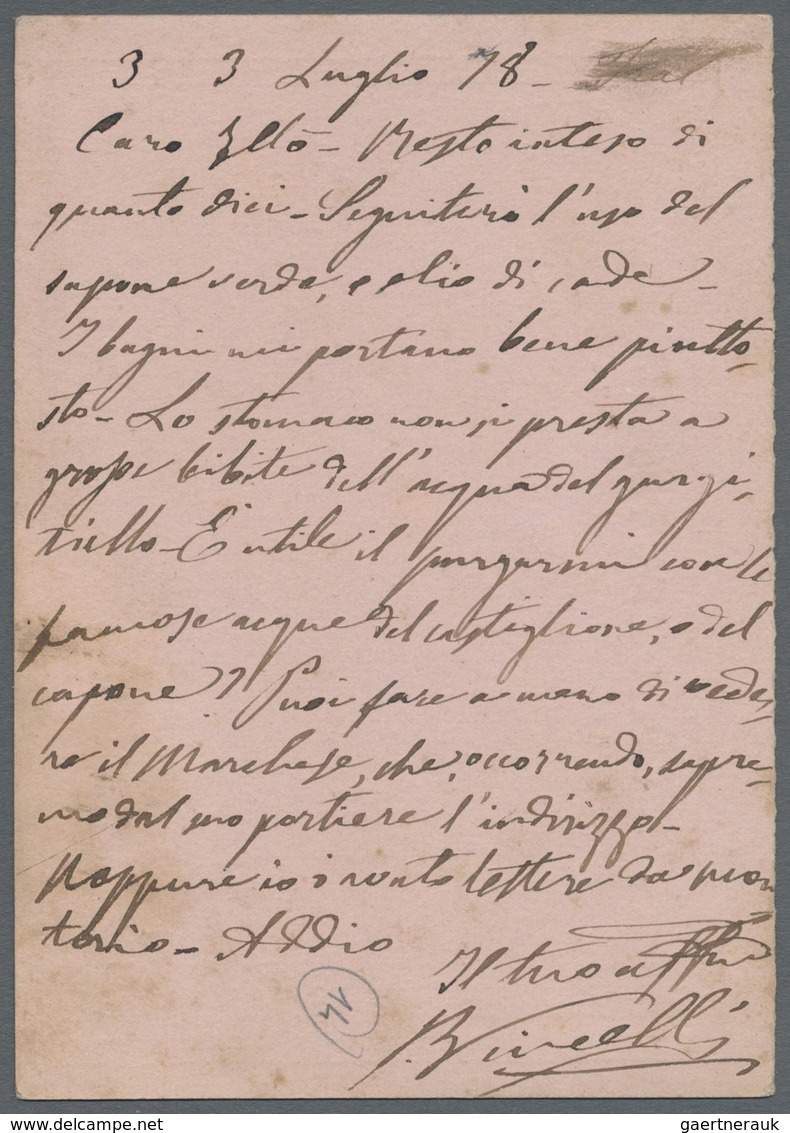 3 3 Luglio 78 -
Caro - Resto inteso di
quanto dici - Seguiterò l'uso del
sapone verde, e olio di cade -
I bagni mi portano bene piutto-
sto - Lo stomaco non si presta a
grosse bibite dell'acqua del gurgi-
tiello - È utile il purgarmi con le
famose acque del castiglione, o del
capone? Puoi fare a meno di vede-
re il Marchese, che, occorrendo, sapre-
mo dal suo portiere l'indirizzo -
Neppure io ò avuto lettere da
- Addio
Il tuo aff
gaertnerauk